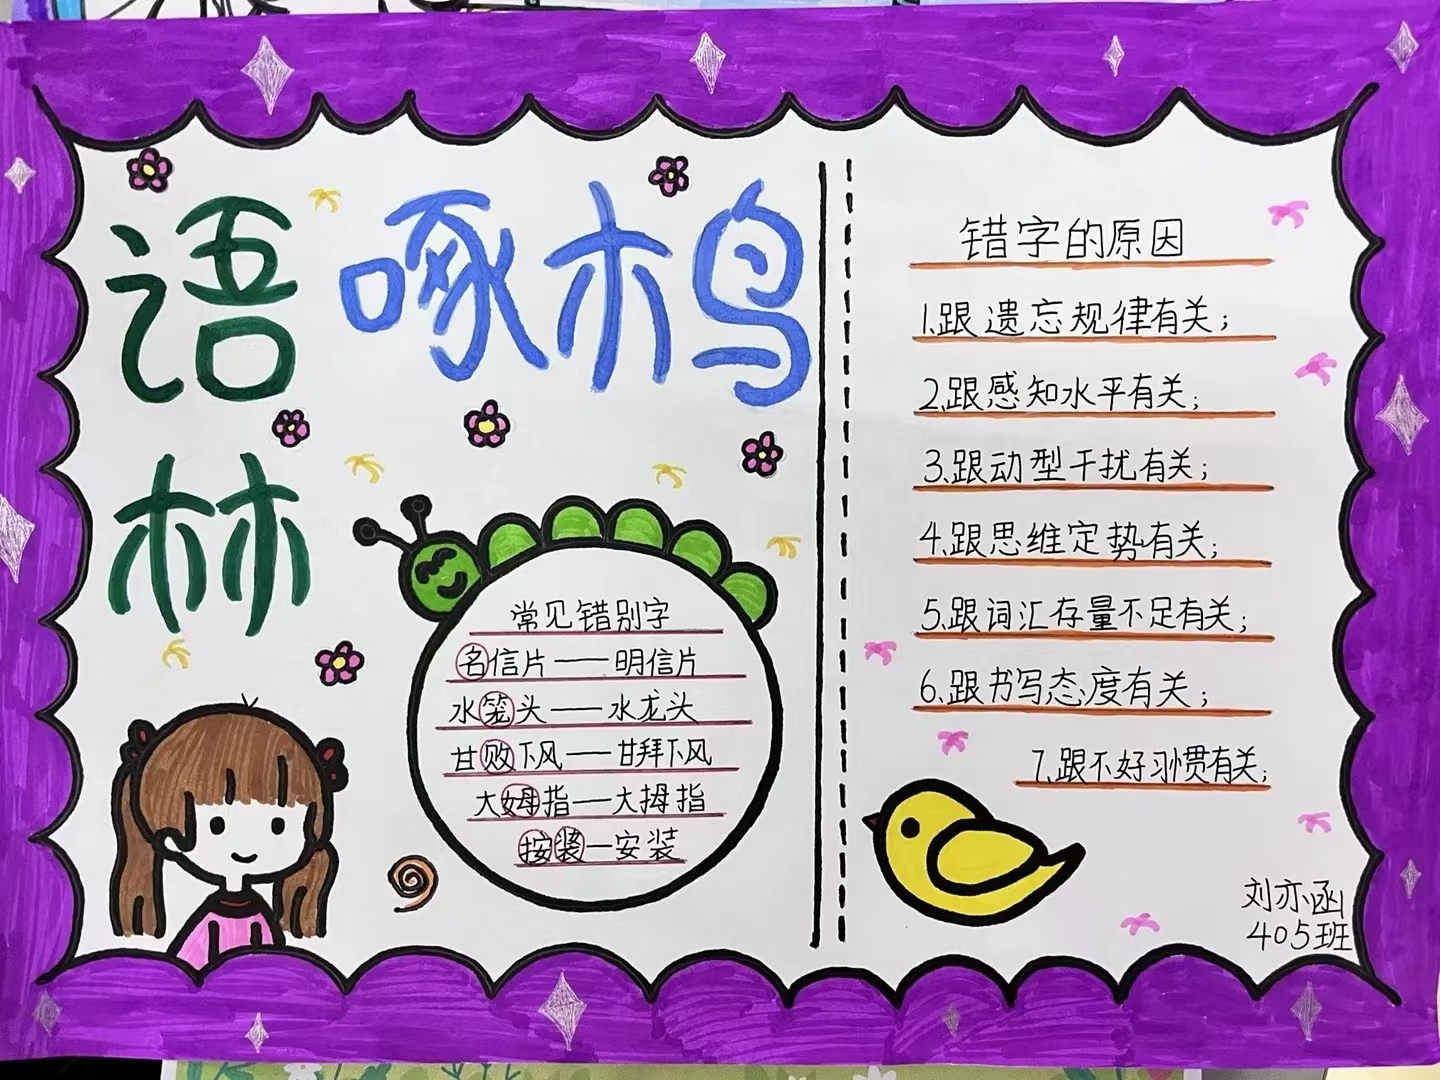 语林啄木鸟
常见错别字
名信片——明信片
水笼头——水龙头
甘败下风——甘拜下风
大姆指——大拇指
按装—安装
错字的原因
1.跟遗忘规律有关；
2.跟感知水平有关；
3.跟动型干扰有关；
4.跟思维定势有关；
5.跟词汇存量不足有关；
6.跟书写态度有关；
7.跟不好习惯有关；
刘亦函
405班